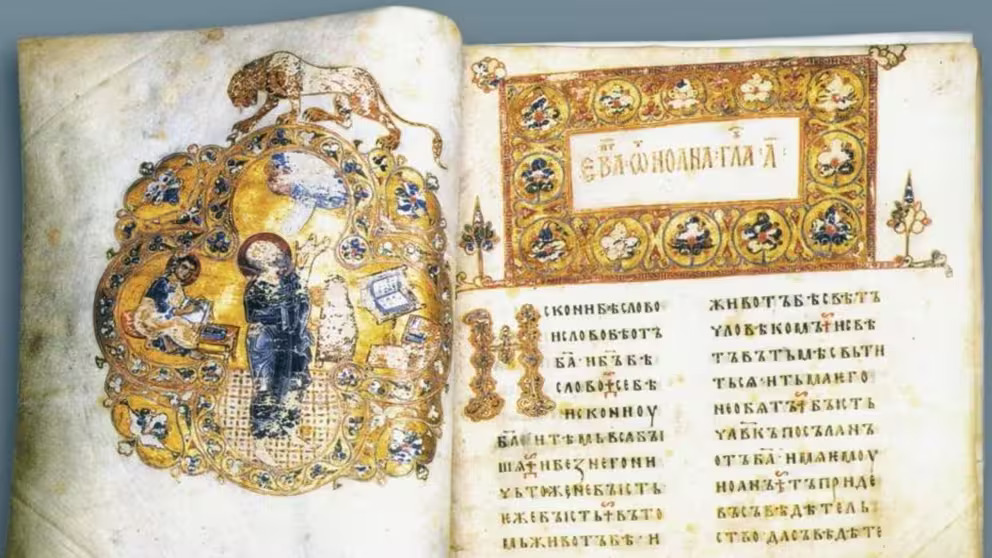 ЕВА҃·Ѡ·ИОАНА·ГЛА·А҃:
ИСКОНИБѢСЛОВО
ИСЛОВОБѢОТЪ
БА҃·ИБЪ҃БѢ
СЛОВО СЕБѢ
ИСКОНИОУ
БА҃ ИТѢМЬВЬСѦБЪІ
ШѦ ИБЕЗНЕГОНИ
ЧЬТОЖЕНЕБЪІСТЬ
ѤЖЕБЪІСТЬ ВЪТО
МЬЖИВОТЪБѢ·И
ЖИВОТЪБѢСВѢТЪ
ЧЛОВѢКОМЪ ИСВѢ
ТЪВЪТЬМѢСВЬТИ
ТЬСѦ·ИТЬМАѤГО
НЕОБѦТЪ БЪІСТЬ
ЧЛВ҃КЪПОСЪЛАНЪ
ОТЪБА҃·ИМѦѤМОУ
ИОАНЪ ТЪПРИДЕ
ВЪСЪВѢДѢТЕЛЬ
СТВО·ДАСЪВѢДѢТЕ